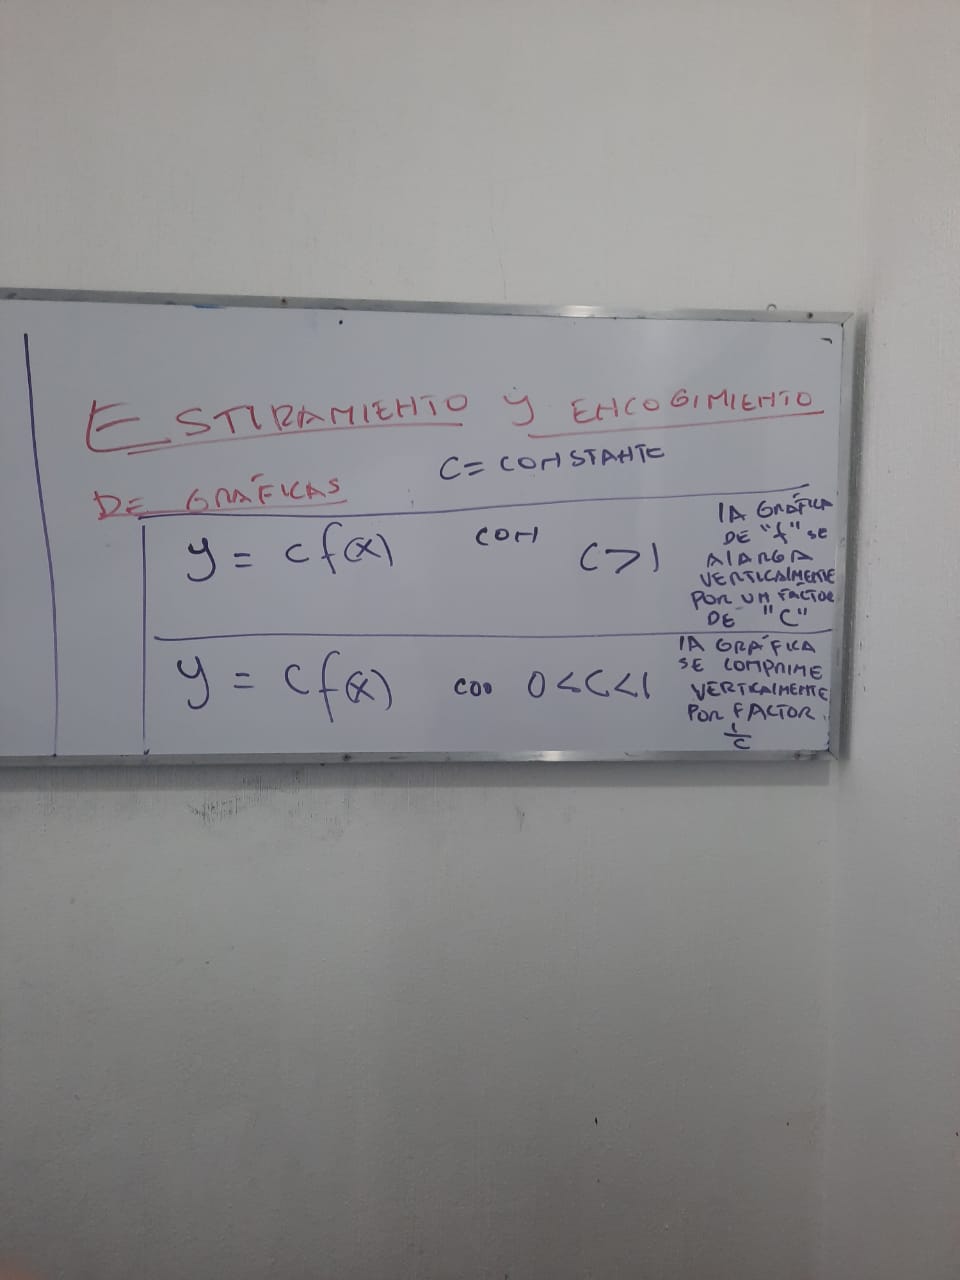 ESTIRAMIENTO Y ENCOGIMIENTO
DE GRÁFICAS
C = CONSTANTE
y = c f(x) CON C > 1
LA GRÁFICA
DE "f" SE
ALARGA
VERTICALMENTE
POR UN FACTOR
DE "C"
y = c f(x) con 0 < C < 1
LA GRÁFICA
SE COMPRIME
VERTICALMENTE
POR FACTOR
1/c